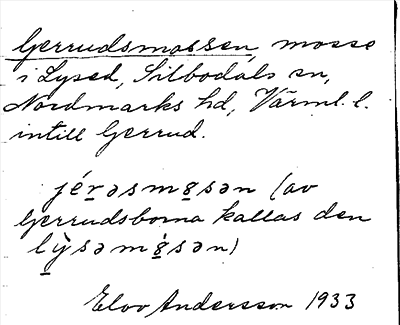 Gerrudsmossen, mosse
i Lysed, Silbodals sn,
Nordmarks hd, Värml. l.
intill Gerrud.
jérəsmo̤sən (av
Gerrudsborna kallas den
lỳsəmò̤sən)
Elov Andersson 1933